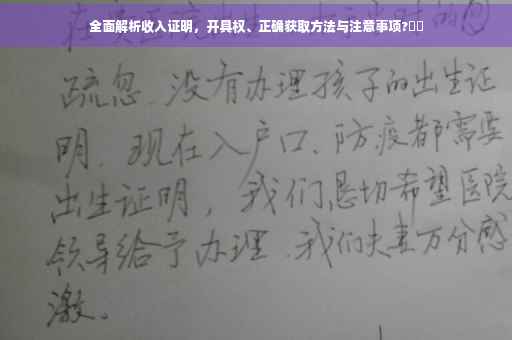 全面解析收入证明，开具权、正确获取方法与注意事项?
疏忽、没有办理孩子的出生证
明、现在入户口、防疫都需要
出生证明，我们恳切希望医院
领导给予办理、我们夫妻万分感
激。